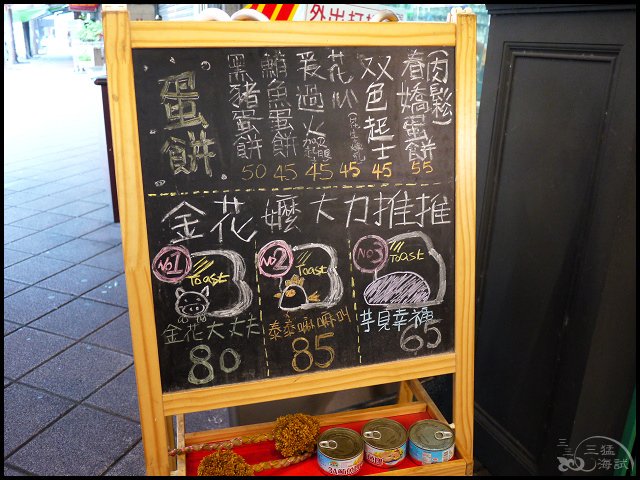 外出打
蛋餅
黑豬蛋餅 50
鮪魚蛋餅 45
愛過火 45
花心 45
双色起士 45
春嬌蛋餅(肉鬆) 55
金花嬤大力推推
No1 Toast
金花大丈夫
80
No2 Toast
泰泰嘛嘛叫
85
No3 Toast
芋見幸福
65
三三三猛
海試